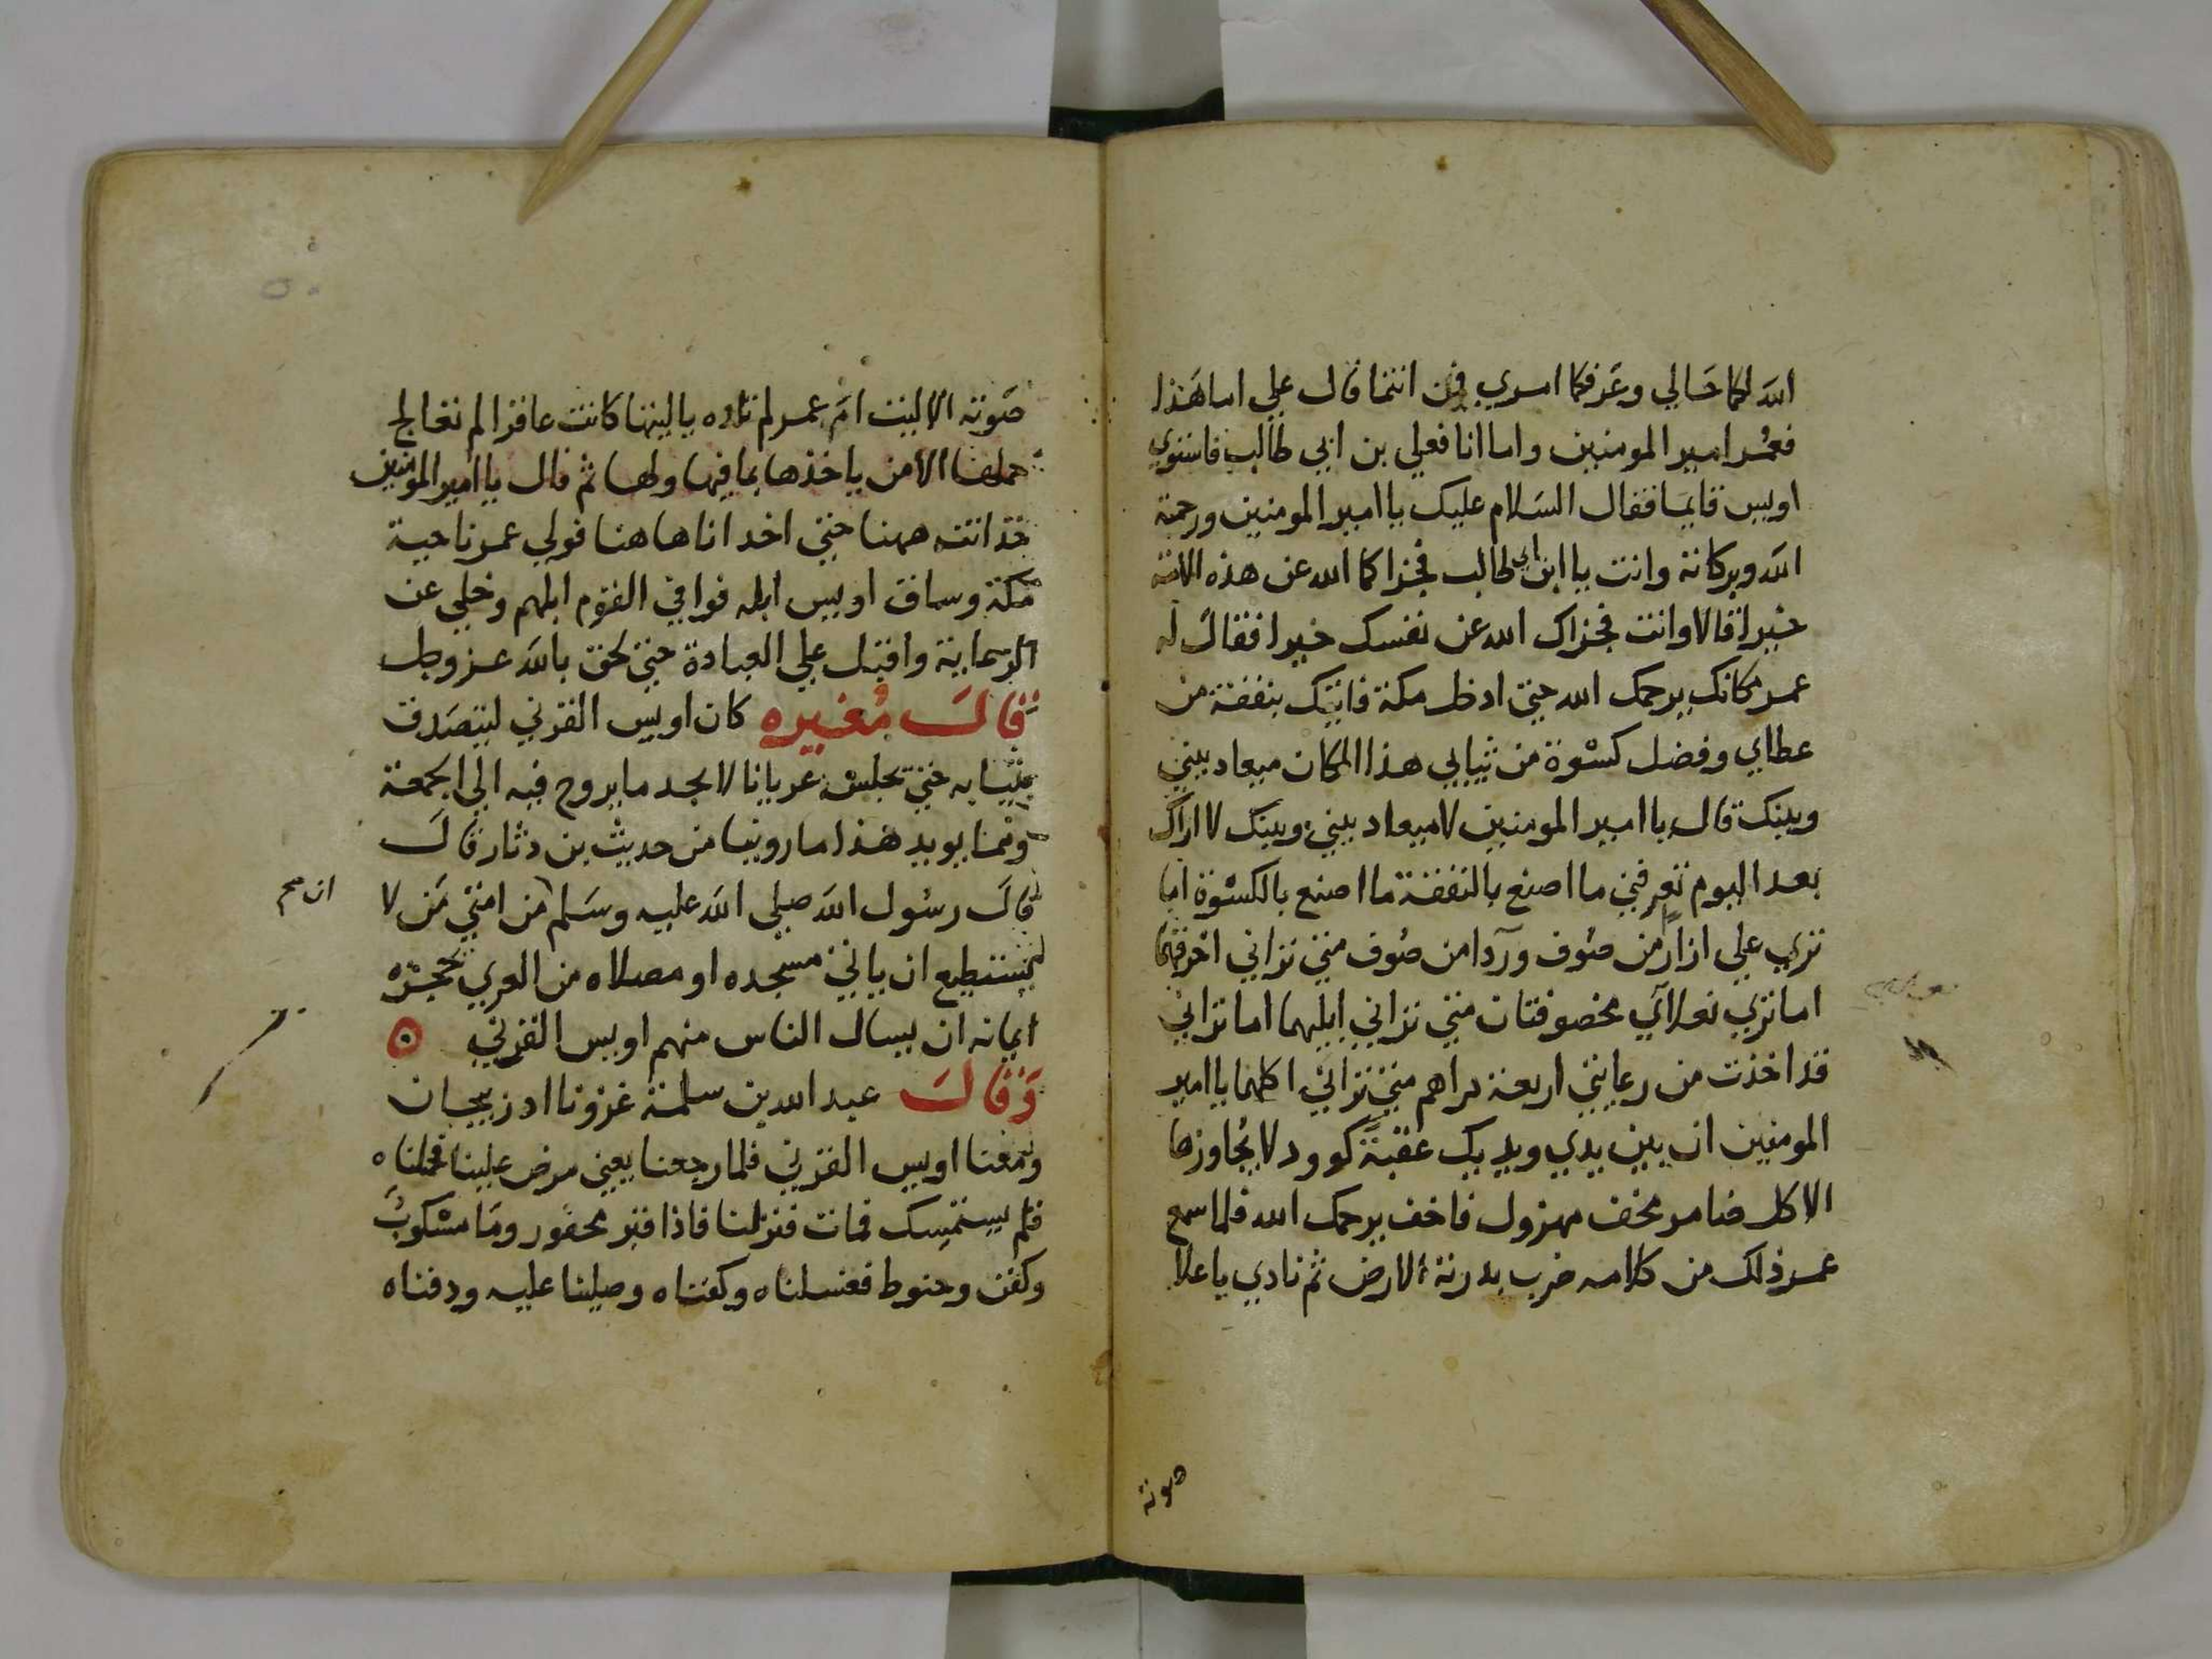 الله لكما حالي وعرفكما امري فمن انتما قال علي اما هذا
فعمر امير المومنين واما انا فعلي بن ابي طالب فاستوي
اويس قايما فقال السلام عليك يا امير المومنين ورحمة
الله وبركاته وانت يا ابن ابي طالب فجزاكما الله عن هذه الامة
خيرا قالا وانت فجزاك الله عن نفسك خيرا فقال له
عمر مكانك يرحمك الله حتي ادخل مكة فاتيك بنفقة من
عطاي وفضل كسوة من ثيابي هذا المكان ميعاد بيني
وبينك قال يا امير المومنين لا ميعاد بيني وبينك لا اراك
بعد اليوم تعرفني ما اصنع بالنفقة ما اصنع بالكسوة اما
تري علي ازار من صوف وردا من صوف متي تراني اخرقهما
اما تري نعلاي مخصوفتان متي تراني ابليهما اما تراني
قد اخذت من رعايتي اربعة دراهم متي تراني اكلهما يا امير
المومنين ان بين يدي ويديك عقبة كوود لا يجاوزها
الا كل ضامر مخف مهزول فاخف يرحمك الله فلما سمع
عمر ذلك من كلامه ضرب بدرته الارض ثم نادي باعلا
صوته
صوته الا ليت ام عمر لم تلده يا ليتها كانت عاقرا لم تعالج
حملها الا من ياخذها بما فيها ولها ثم قال يا امير المومنين
خذ انت ههنا حتي اخد انا هاهنا فولي عمر ناحية
مكة وساق اويس ابله فوافي القوم ابلهم وخلي عن
الرعاية واقبل علي العبادة حتي لحق بالله عز وجل
قال مغيره كان اويس القرني ليتصدق
بثيابه حتي يجلس عريانا لا يجد ما يروح فيه الي الجمعة
ومما يويد هذا ما روينا من حديث بن دثار قال
قال رسول الله صلي الله عليه وسلم من امتي من لا
ان صح
يستطيع ان ياتي مسجده او مصلاه من العري يحجزه
ايمانه ان يسال الناس منهم اويس القرني
وقال عبد الله بن سلمة غزونا ادربيجان
ومعنا اويس القرني فلما رجعنا يعني مرض علينا فحملناه
فلم يستمسك فمات فنزلنا فاذا قبر محفور وما مسكوب
وكفن وحنوط فغسلناه وكفناه وصلينا عليه ودفناه